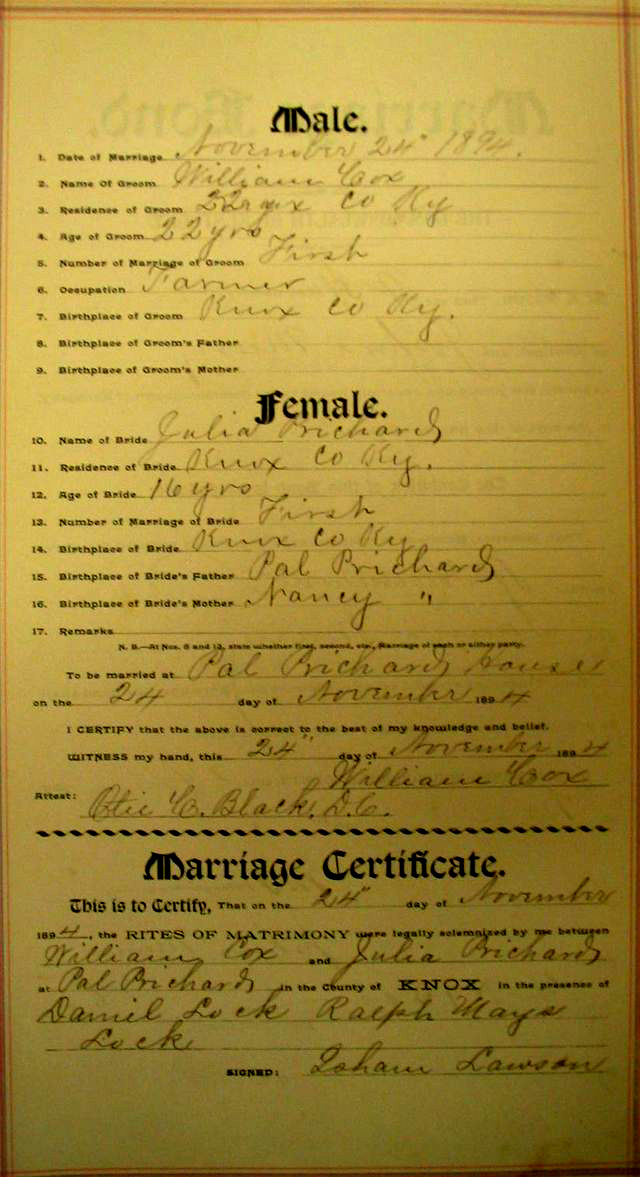 Male.
1. Date of Marriage November 24" 1894.
2. Name Of Groom William Cox
3. Residence of Groom Co Ky
4. Age of Groom 22 yrs
5. Number of Marriage of Groom First
6. Occupation Farmer
7. Birthplace of Groom Knox Co Ky.
8. Birthplace of Groom's Father
9. Birthplace of Groom's Mother
Female.
10. Name of Bride Julia Prichard
11. Residence of Bride Knox Co Ky.
12. Age of Bride 16 yrs
13. Number of Marriage of Bride First
14. Birthplace of Bride Knox Co Ky
15. Birthplace of Bride's Father Pal Prichard
16. Birthplace of Bride's Mother Nancy "
17. Remarks
N. B.—At Nos. 5 and 13, state whether first, second, etc., Marriage of each or either party.
To be married at Pal Prichard house
on the 24 day of November 1894
I CERTIFY that the above is correct to the best of my knowledge and belief.
WITNESS my hand, this 24" day of November 1894
William Cox
Attest: C. Black, D.C.
Marriage Certificate.
This is to Certify, That on the 24" day of November
1894, the RITES OF MATRIMONY were legally solemnized by me between
William Cox and Julia Prichard
at Pal Prichard in the County of KNOX in the presence of
Daniel Lock Ralph Mays
Lock
SIGNED: Lawson